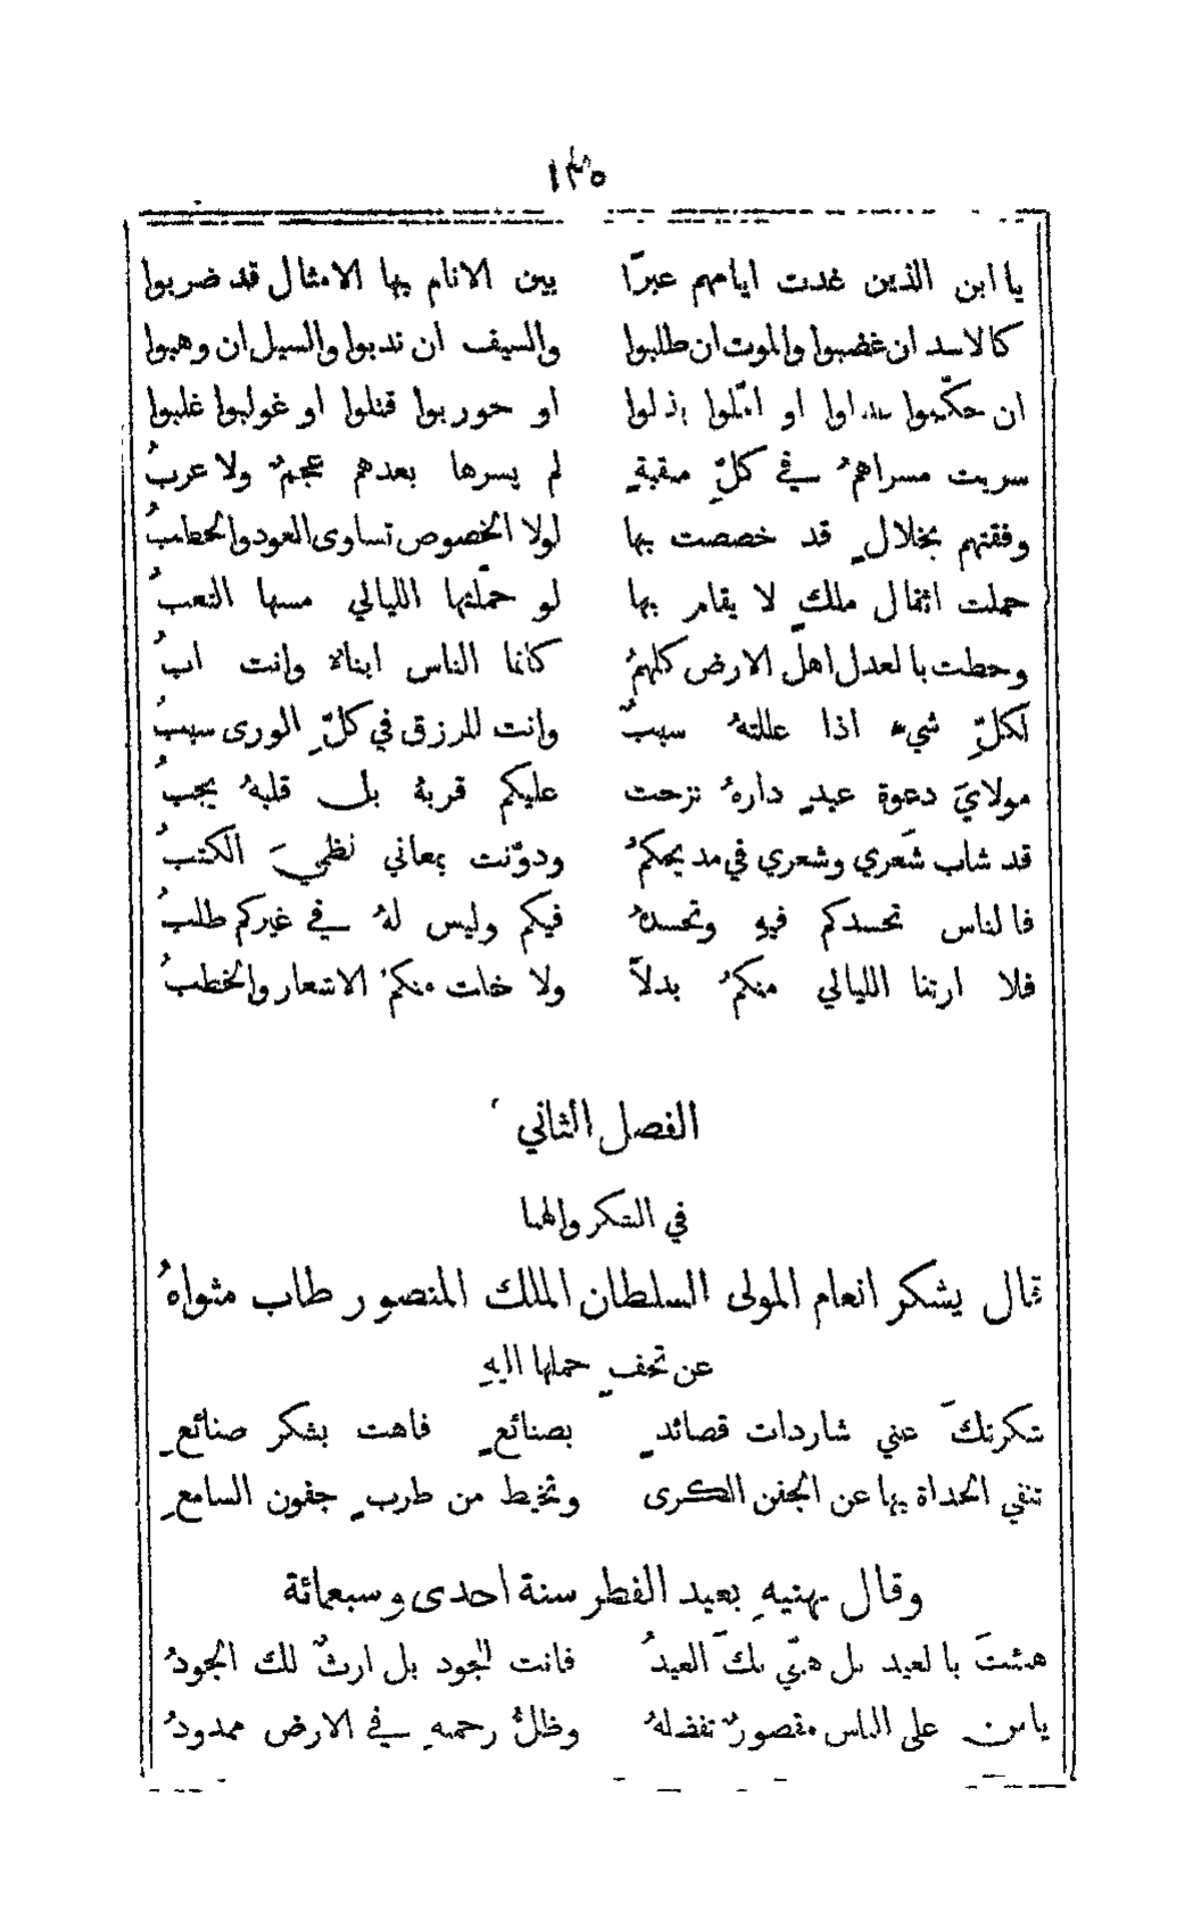 ١٣٥
يا ابن الذين غدت ايامهم عبرًا بين الانام بها الامثال قد ضربوا
كالاسد ان غضبوا والموت ان طلبوا والسيف ان ندبوا والسيل ان وهبوا
ان حكّموا عدلوا او امّلوا بذلوا او حوربوا قتلوا او غولبوا غلبوا
سريت مسراهمُ في كلِّ منقبةٍ لم يسرها بعدهم عجمٌ ولا عربُ
وفقتهم بخلالٍ قد خصصت بها لولا الخصوص تساوى العود والحطبُ
حملت اثقال ملكٍ لا يقام بها لو حمّلتها الليالي مسها التعبُ
وحطت بالعدل اهل الارض كلهمُ كانما الناس ابناءٌ وانت ابُ
لكلِّ شيء اذا عللتهُ سببٌ وانت للرزق في كلِّ الورى سببُ
مولايَ دعوة عبدٍ دارهُ نزحت عليكم قربهُ بل قلبهُ يجبُ
قد شاب شَعري وشعري في مديحكمُ ودوّنت بمعاني نظميَ الكتبُ
فالناس تحسدكم فيهِ وتحسدهُ فيكم وليس لهُ في غيركم طلبُ
فلا ارتنا الليالي منكمُ بدلاً ولا خلت منكمُ الاشعار والخطبُ
الفصل الثاني
في الشكر والهنا
قال يشكر انعام المولى السلطان الملك المنصور طاب مثواهُ
عن تحفٍ حملها اليهِ
شكرتكَ عني شاردات قصائدٍ بصنائعٍ فاهت بشكر صنائعِ
تنفي الحداة بها عن الجفن الكرى وتخيط من طربٍ جفون السامعِ
وقال يهنيهِ بعيد الفطر سنة احدى وسبعمائة
هنئتَ بالعيد بل هنّي بكَ العيدُ فانت للجود بل ارثٌ لك الجودُ
يا من على الناس مقصورٌ تفضلهُ وظلُّ رحمتهِ في الارض ممدودُ